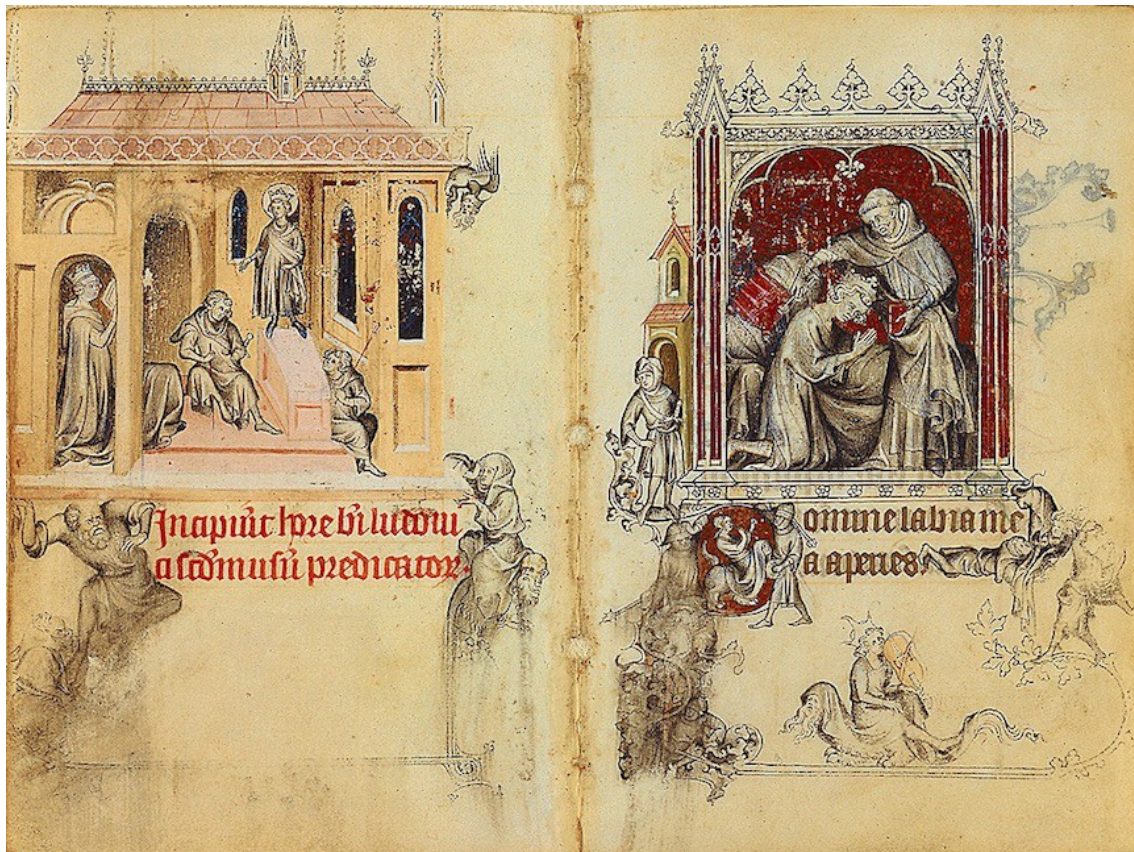 Incipiūt hore bi̅ ludoui
ci scd̅m usū predicator.
Domine labia me
a aperies.